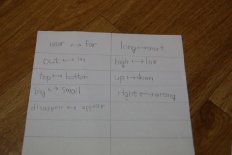 near ↔ far
out ↔ in
top ↔ bottom
big ↔ small
disappear ↔ appear
long ↔ short
high ↔ low
up ↔ down
right ↔ wrong